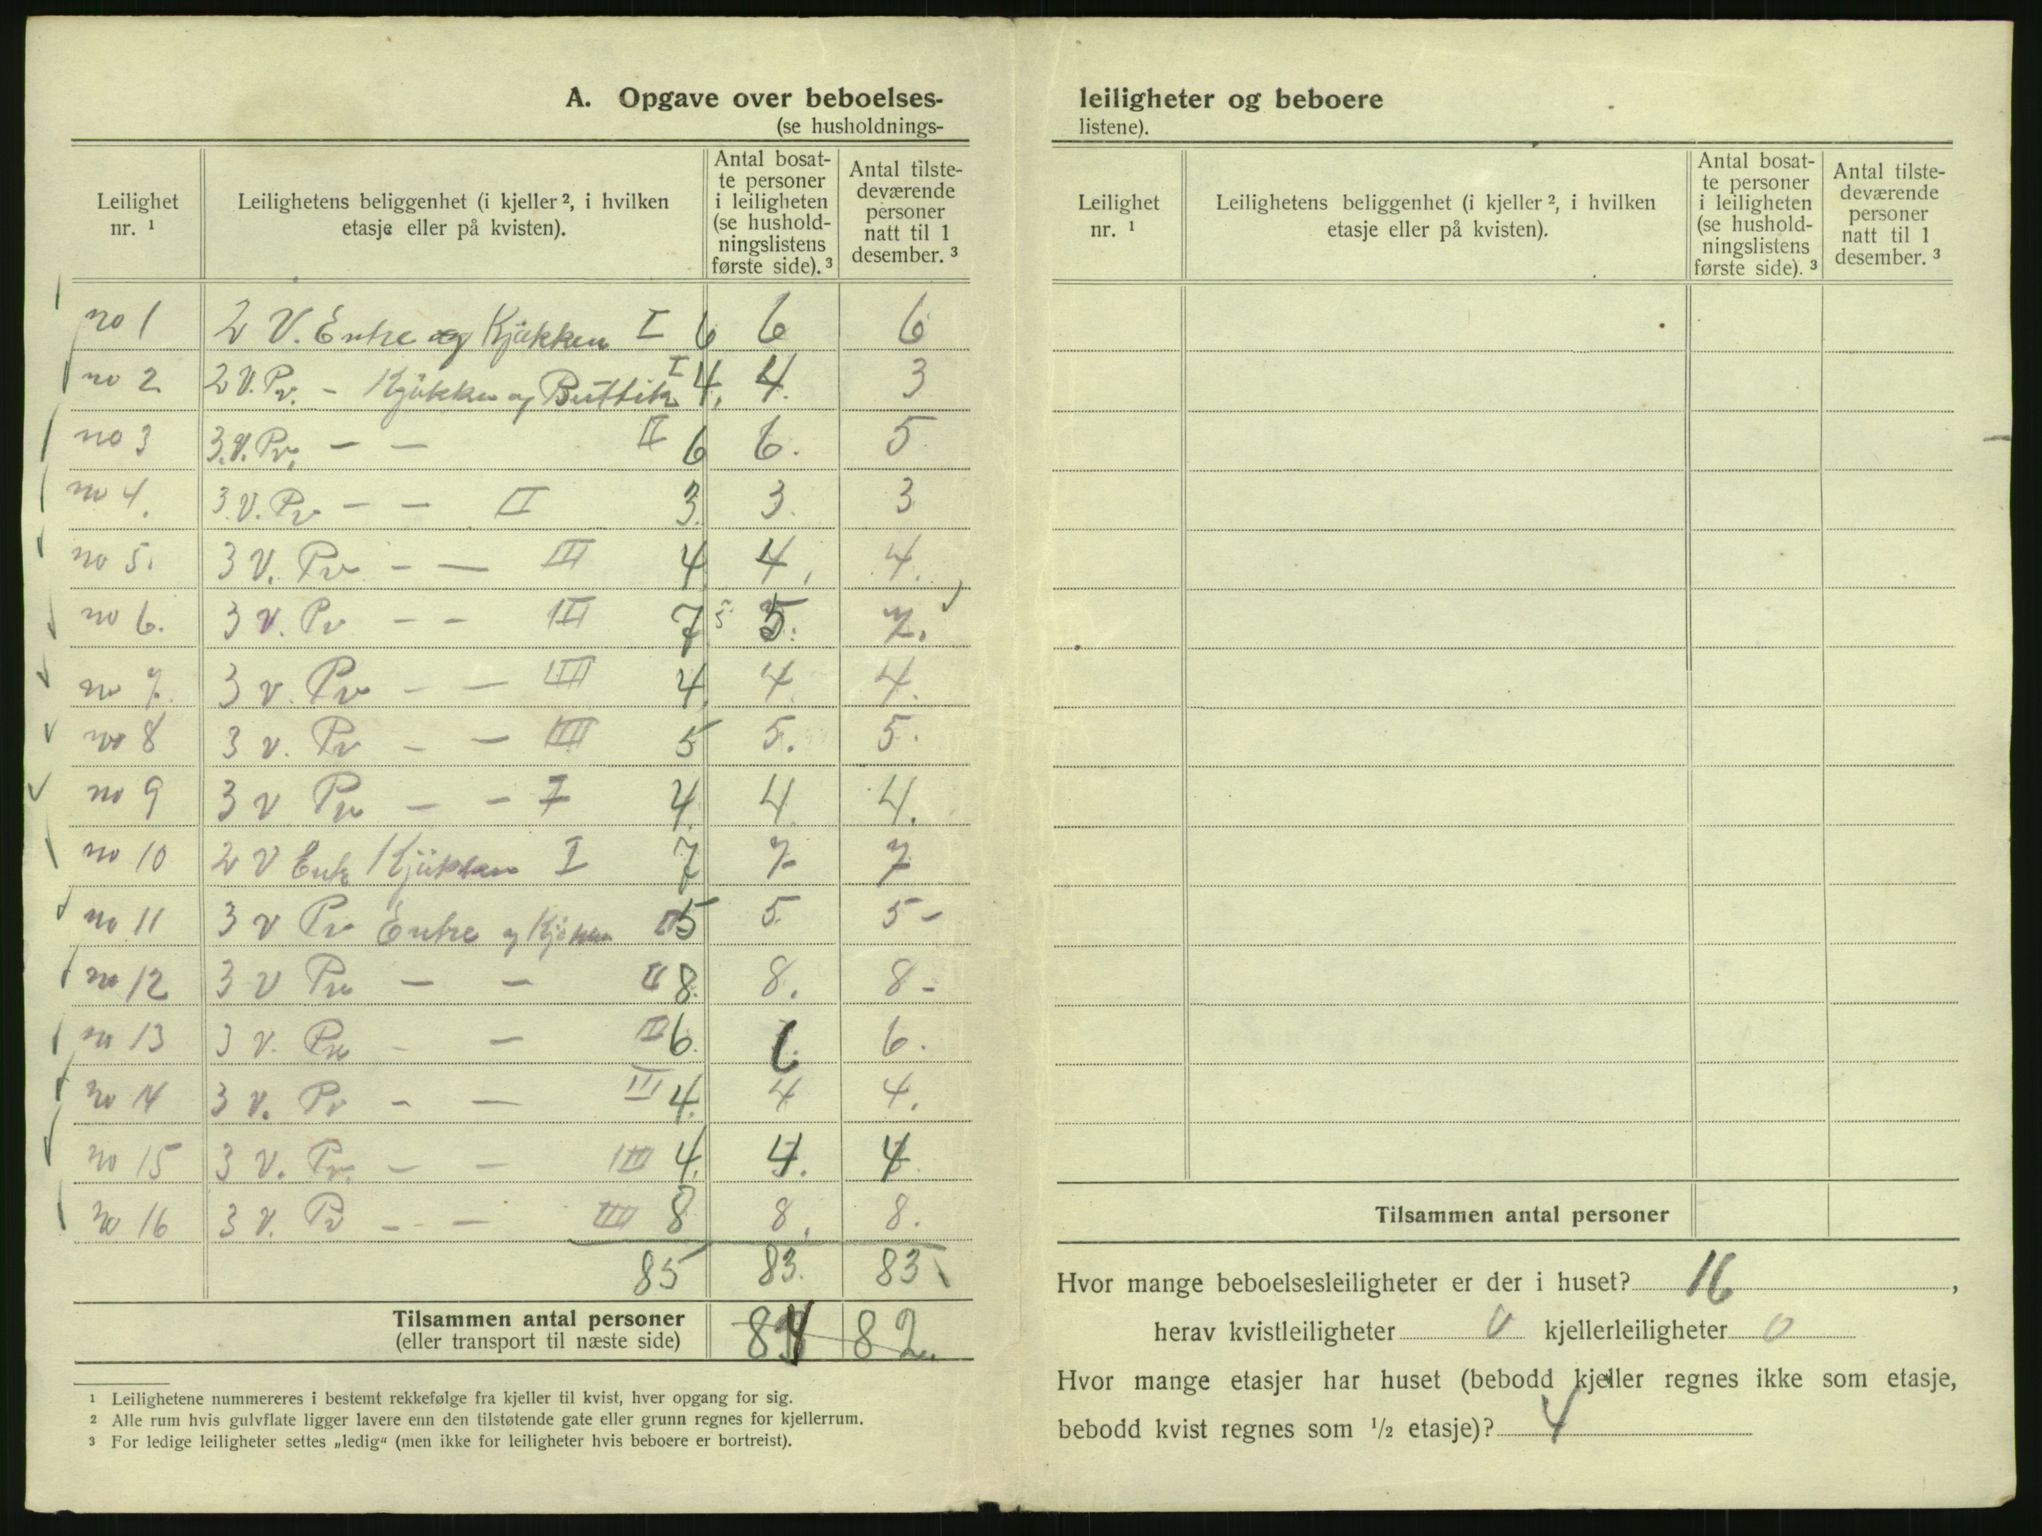 A. Opgave over beboelses-
(se husholdnings-
Leilighet nr. ¹ Leilighetens beliggenhet (i kjeller ², i hvilken etasje eller på kvisten). Antal bosatte personer i leiligheten (se husholdningslistens første side). ³ Antal tilstedeværende personer natt til 1 desember. ³
no 1 2 V. Entre og Kjøkken I 6 6 6
no 2 2 V. Pv. - Kjøkken og Buttik I 4. 4. 3
no 3 3. V. Pv. — — II 6 6. 5
no 4. 3. V. Pv — — II 3. 3. 3
no 5. 3 V. Pv - — III 4 4. 4.
no 6. 3 V. Pv - - III 7 5 5. 7.
no 7. 3 v. Pv - — IIII 4. 4. 4.
no 8 3 v. Pv - — IIII 5 5. 5.
no 9 3 v Pv — - I 4. 4. 4.
no 10 2 V Ent Kjøkken I 7 7 7
no 11 3 v Pv Entre og Kjøken II 5 5. 5-
no 12 3 V Pv — — II 8. 8. 8-
no 13 3 v. Pv - — II 6. 6 6.
no 14 3 v. Pv - — III 4. 4 4.
no 15 3 V. Pv. - — IIII 4. 4. 4
no 16 3 v. Pv - - — IIII 8 8. 8.
85 83. 83.
Tilsammen antal personer
(eller transport til næste side) 84 82.
¹ Leilighetene nummereres i bestemt rekkefølge fra kjeller til kvist, hver opgang for sig.
² Alle rum hvis gulvflate ligger lavere enn den tilstøtende gate eller grunn regnes for kjellerrum.
³ For ledige leiligheter settes „ledig“ (men ikke for leiligheter hvis beboere er bortreist).
leiligheter og beboere
listene).
Leilighet nr. ¹ Leilighetens beliggenhet (i kjeller ², i hvilken etasje eller på kvisten). Antal bosatte personer i leiligheten (se husholdningslistens første side). ³ Antal tilstedeværende personer natt til 1 desember. ³
Tilsammen antal personer
Hvor mange beboelsesleiligheter er der i huset? 16,
herav kvistleiligheter 0 kjellerleiligheter 0
Hvor mange etasjer har huset (bebodd kjeller regnes ikke som etasje,
bebodd kvist regnes som ½ etasje)? 4